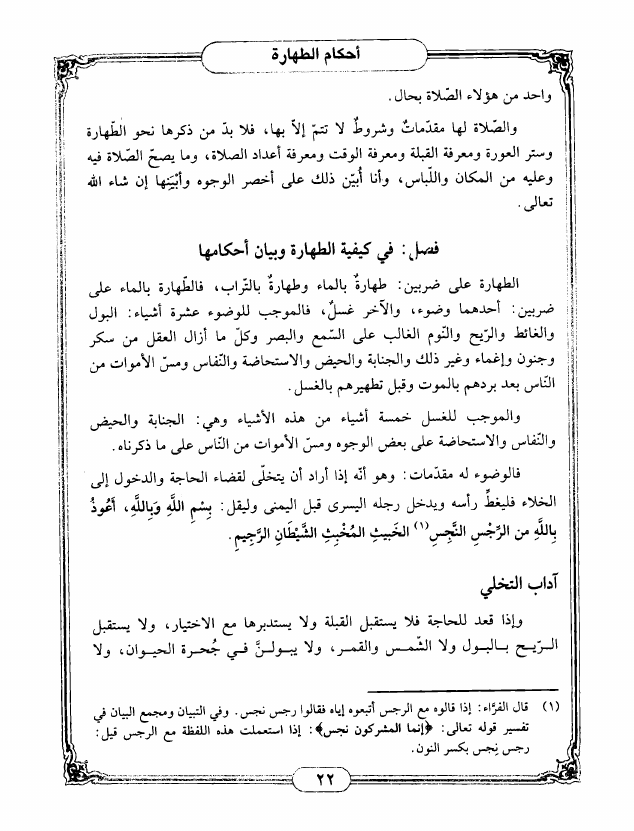 أحكام الطهارة
واحد من هؤلاء الصّلاة بحال.
والصّلاة لها مقدّماتٌ وشروطٌ لا تتمّ إلاّ بها، فلا بدّ من ذكرها نحو الطّهارة
وستر العورة ومعرفة القبلة ومعرفة الوقت ومعرفة أعداد الصلاة، وما يصحّ الصّلاة فيه
وعليه من المكان واللّباس، وأنا أُبيّن ذلك على أخصر الوجوه وأبْيَنِها إن شاء الله
تعالى.
فصل: في كيفية الطهارة وبيان أحكامها
الطهارة على ضربين: طهارةٌ بالماء وطهارةٌ بالتّراب، فالطّهارة بالماء على
ضربين: أحدهما وضوء، والآخر غسلٌ، فالموجب للوضوء عشرة أشياء: البول
والغائط والرّيح والنّوم الغالب على السّمع والبصر وكلّ ما أزال العقل من سكر
وجنون وإغماء وغير ذلك والجنابة والحيض والاستحاضة والنّفاس ومسّ الأموات من
النّاس بعد بردهم بالموت وقبل تطهيرهم بالغسل.
والموجب للغسل خمسة أشياء من هذه الأشياء وهي: الجنابة والحيض
والنّفاس والاستحاضة على بعض الوجوه ومسّ الأموات من النّاس على ما ذكرناه.
فالوضوء له مقدّمات: وهو أنّه إذا أراد أن يتخلّى لقضاء الحاجة والدخول إلى
الخلاء فليغطِّ رأسه ويدخل رجله اليسرى قبل اليمنى وليقل: بِسْمِ اللَّهِ وَبِاللَّهِ، أَعُوذُ
بِاللَّهِ من الرِّجْسِ النَّجِسِ(١) الخَبيثِ المُخْبِثِ الشَّيْطَانِ الرَّجِيمِ.
آداب التخلي
وإذا قعد للحاجة فلا يستقبل القبلة ولا يستدبرها مع الاختيار، ولا يستقبل
الرّيح بالبول ولا الشّمس والقمر، ولا يبولنَّ في جُحرة الحيوان، ولا
(١) قال الفرّاء: إذا قالوه مع الرجس أتبعوه إياه فقالوا رجس نجس. وفي التبيان ومجمع البيان في
تفسير قوله تعالى: ﴿إنما المشركون نجس﴾: إذا استعملت هذه اللفظة مع الرجس قيل:
رجس نِجس بكسر النون.
٢٢